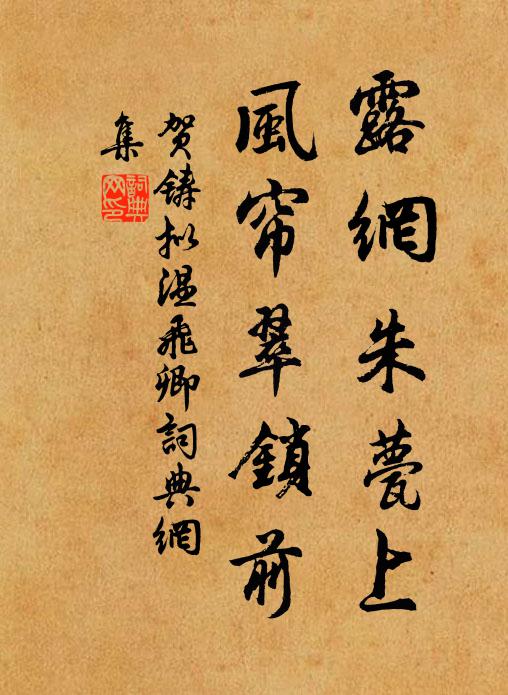 露網朱甍上
風帘翠鎖前
贺鑄拟温飛卿詞典網
集
詞典网印